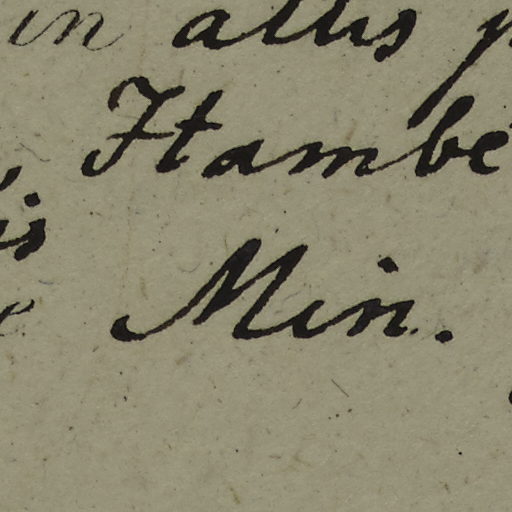 in allis
Htambe
is
Min.